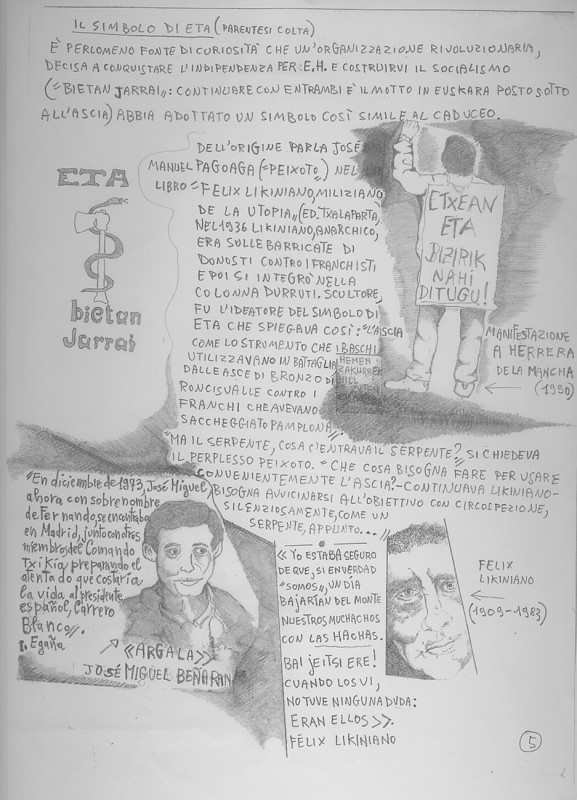 IL SIMBOLO DI ETA (PARENTESI COLTA)
È PERLOMENO FONTE DI CURIOSITÀ CHE UN'ORGANIZZAZIONE RIVOLUZIONARIA,
DECISA A CONQUISTARE L'INDIPENDENZA PER E.H. E COSTRUIRVI IL SOCIALISMO
("BIETAN JARRAI": CONTINUARE CON ENTRAMBI È IL MOTTO IN EUSKARA POSTO SOTTO
ALL'ASCIA) ABBIA ADOTTATO UN SIMBOLO COSÌ SIMILE AL CADUCEO.
DELL'ORIGINE PARLA JOSÉ
MANUEL PAGOAGA ("PEIXOTO") NEL
LIBRO "FELIX LIKINIANO, MILIZIANO
DE LA UTOPIA" (ED. TXALAPARTA)
NEL 1936 LIKINIANO, ANARCHICO,
ERA SULLE BARRICATE DI
DONOSTI CONTRO I FRANCHISTI
E POI SI INTEGRÒ NELLA
COLONNA DURRUTI. SCULTORE,
FU L'IDEATORE DEL SIMBOLO DI
ETA CHE SPIEGAVA COSÌ: "L'ASCIA
COME LO STRUMENTO CHE I BASCHI
UTILIZZAVANO IN BATTAGLIA
DALLE ASCE DI BRONZO DI
RONCISVALLE CONTRO I
FRANCHI CHE AVEVANO
SACCHEGGIATO PAMPLONA"
"MA IL SERPENTE, COSA C'ENTRAVA IL SERPENTE?" SI CHIEDEVA
IL PERPLESSO PEIXOTO. "CHE COSA BISOGNA FARE PER USARE
CONVENIENTEMENTE L'ASCIA?-CONTINUAVA LIKINIANO-
BISOGNA AVVICINARSI ALL'OBIETTIVO CON CIRCOLPEZIONE,
SILENZIOSAMENTE, COME UN
SERPENTE, APPUNTO..."
ETA
bietan
Jarrai
ETXEAN
ETA
BIZIRIK
NAHI
DITUGU!
MANIFESTAZIONE
A HERRERA
DE LA MANCHA
(1990)
HEMEN
ZAKURREK
"En diciembre de 1973, José Miguel,
ahora con sobrenombre
de Fernando, se encontraba
en Madrid, junto con otros
miembros del Comando
Txikia, preparando el
atentado que costaría
la vida al presidente
español, Carrero
Blanco".
I. Egaña
«ARGALA»
JOSÉ MIGUEL BEÑARAN
«YO ESTABA SEGURO
DE QUE, SI EN VERDAD
"SOMOS", UN DIA
BAJARIAN DEL MONTE
NUESTROS MUCHACHOS
CON LAS HACHAS.
BAI JEITSI ERE!
CUANDO LOS VI,
NO TUVE NINGUNA DUDA:
ERAN ELLOS».
FÉLIX LIKINIANO
FELIX
LIKINIANO
(1909-1983)
5